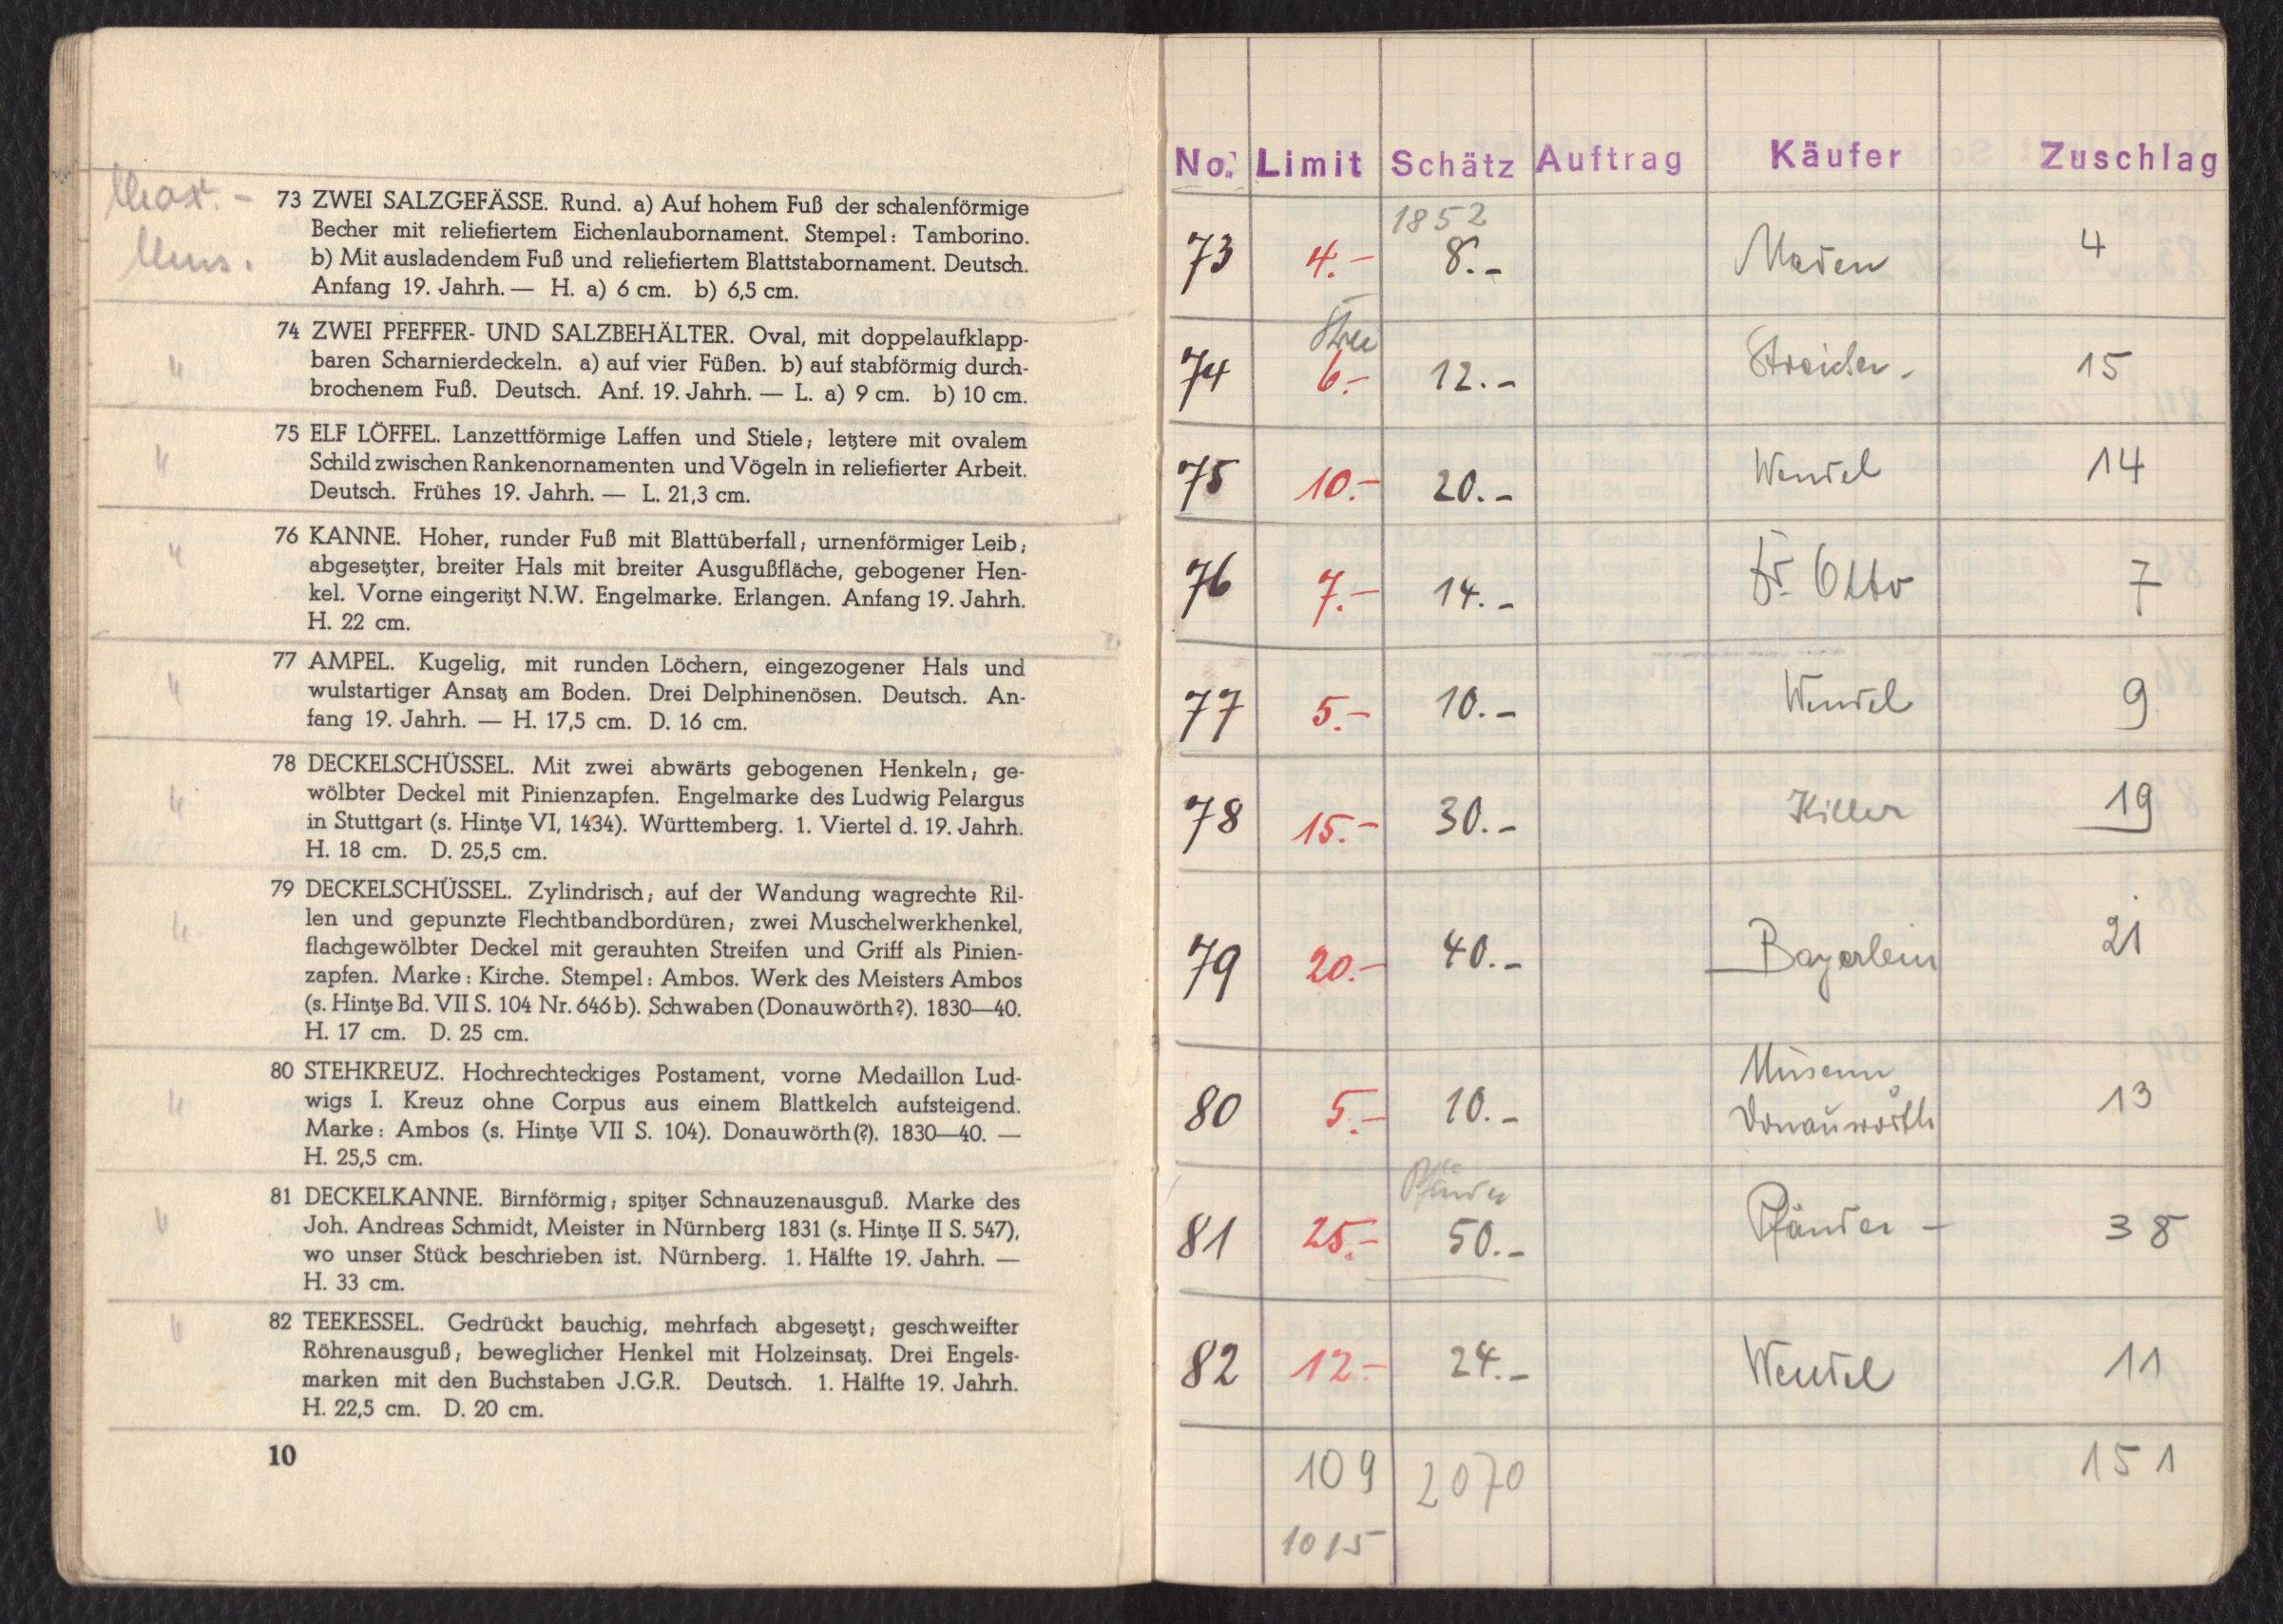 73 ZWEI SALZGEFÄSSE. Rund. a) Auf hohem Fuß der schalenförmige
Becher mit reliefiertem Eichenlaubornament. Stempel: Tamborino.
b) Mit ausladendem Fuß und reliefiertem Blattstabornament. Deutsch.
Anfang 19. Jahrh. — H. a) 6 cm. b) 6,5 cm.
74 ZWEI PFEFFER- UND SALZBEHÄLTER. Oval, mit doppelaufklapp-
baren Scharnierdeckeln. a) auf vier Füßen. b) auf stabförmig durch-
brochenem Fuß. Deutsch. Anf. 19. Jahrh. — L. a) 9 cm. b) 10 cm.
75 ELF LÖFFEL. Lanzettförmige Laffen und Stiele; letztere mit ovalem
Schild zwischen Rankenornamenten und Vögeln in reliefierter Arbeit.
Deutsch. Frühes 19. Jahrh. — L. 21,3 cm.
76 KANNE. Hoher, runder Fuß mit Blattüberfall; urnenförmiger Leib;
abgesetzter, breiter Hals mit breiter Ausgußfläche, gebogener Hen-
kel. Vorne eingeritzt N.W. Engelmarke. Erlangen. Anfang 19. Jahrh.
H. 22 cm.
77 AMPEL. Kugelig, mit runden Löchern, eingezogener Hals und
wulstartiger Ansatz am Boden. Drei Delphinenösen. Deutsch. An-
fang 19. Jahrh. — H. 17,5 cm. D. 16 cm.
78 DECKELSCHÜSSEL. Mit zwei abwärts gebogenen Henkeln; ge-
wölbter Deckel mit Pinienzapfen. Engelmarke des Ludwig Pelargus
in Stuttgart (s. Hintze VI, 1434). Württemberg. 1. Viertel d. 19. Jahrh.
H. 18 cm. D. 25,5 cm.
79 DECKELSCHÜSSEL. Zylindrisch; auf der Wandung wagrechte Ril-
len und gepunzte Flechtbandbordüren; zwei Muschelwerkhenkel,
flachgewölbter Deckel mit gerauhten Streifen und Griff als Pinien-
zapfen. Marke: Kirche. Stempel: Ambos. Werk des Meisters Ambos
(s. Hintze Bd. VII S. 104 Nr. 646 b). Schwaben (Donauwörth?). 1830—40.
H. 17 cm. D. 25 cm.
80 STEHKREUZ. Hochrechteckiges Postament, vorne Medaillon Lud-
wigs I. Kreuz ohne Corpus aus einem Blattkelch aufsteigend.
Marke: Ambos (s. Hintze VII S. 104). Donauwörth (?). 1830—40. —
H. 25,5 cm.
81 DECKELKANNE. Birnförmig; spitzer Schnauzenausguß. Marke des
Joh. Andreas Schmidt, Meister in Nürnberg 1831 (s. Hintze II S. 547),
wo unser Stück beschrieben ist. Nürnberg. 1. Hälfte 19. Jahrh. —
H. 33 cm.
82 TEEKESSEL. Gedrückt bauchig, mehrfach abgesetzt; geschweifter
Röhrenausguß; beweglicher Henkel mit Holzeinsatz. Drei Engels-
marken mit den Buchstaben J.G.R. Deutsch. 1. Hälfte 19. Jahrh.
H. 22,5 cm. D. 20 cm.
10
No. Limit Schätz Auftrag Käufer Zuschlag
1852
73 4.- 8.- 4
74 6.- 12.- Streicher - 15
75 10.- 20.- Wendel 14
76 7.- 14.- Dr. Otto 7
77 5.- 10.- Wendel 9
78 15.- 30.- Killer 19
79 20.- 40.- Bayerlein 21
Museum
80 5.- 10.- Donauwörth 13
Pfänder
81 25.- 50.- Pfänder - 38
82 12.- 24.- Wendel 11
109 2070 151
1015